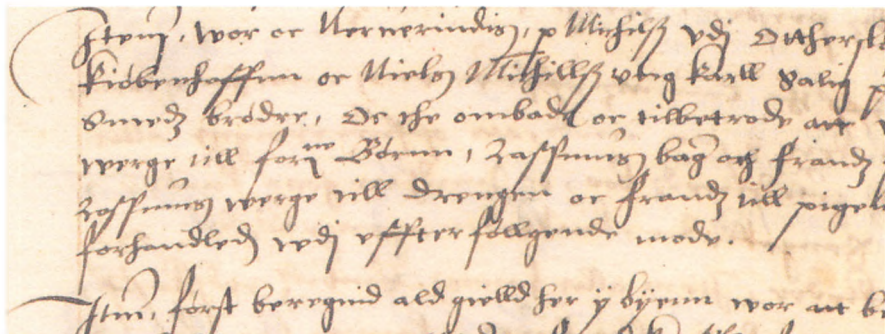 Item, wor oc Nerverindis, p Michilss vdj Otthersl
Kiøbenhaffnn oc Niels Michillss vng karll Salig p
Smedz brødre, Oc the ombade oc tilbetrode att
werge till forne Børnn, Rassmus bag och frandz
Rassmus werge till drengen oc frandz till pigel
forhandledz wdj effterføllgende mode.
Itm, først beregnid ald gielld her y byenn wor att be